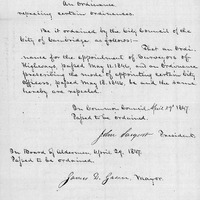 An Ordinance
repealing certain ordinances.
Be it ordained by the City Council of the
City of Cambridge as follows:-
That an Ordi-
nance for the appointment of Surveyors of
Highways, passed May 11. 1846, and an ordinance
prescribing the mode of appointing certain City
Officers, passed May 18. 1846, be and the same
hereby are repealed.
In Common Council, April 29th 1847.
Passed to be ordained.
John Sargent President.
In Board of Aldermen, April 29, 1847.
Passed to be ordained.
James D. Green, Mayor.